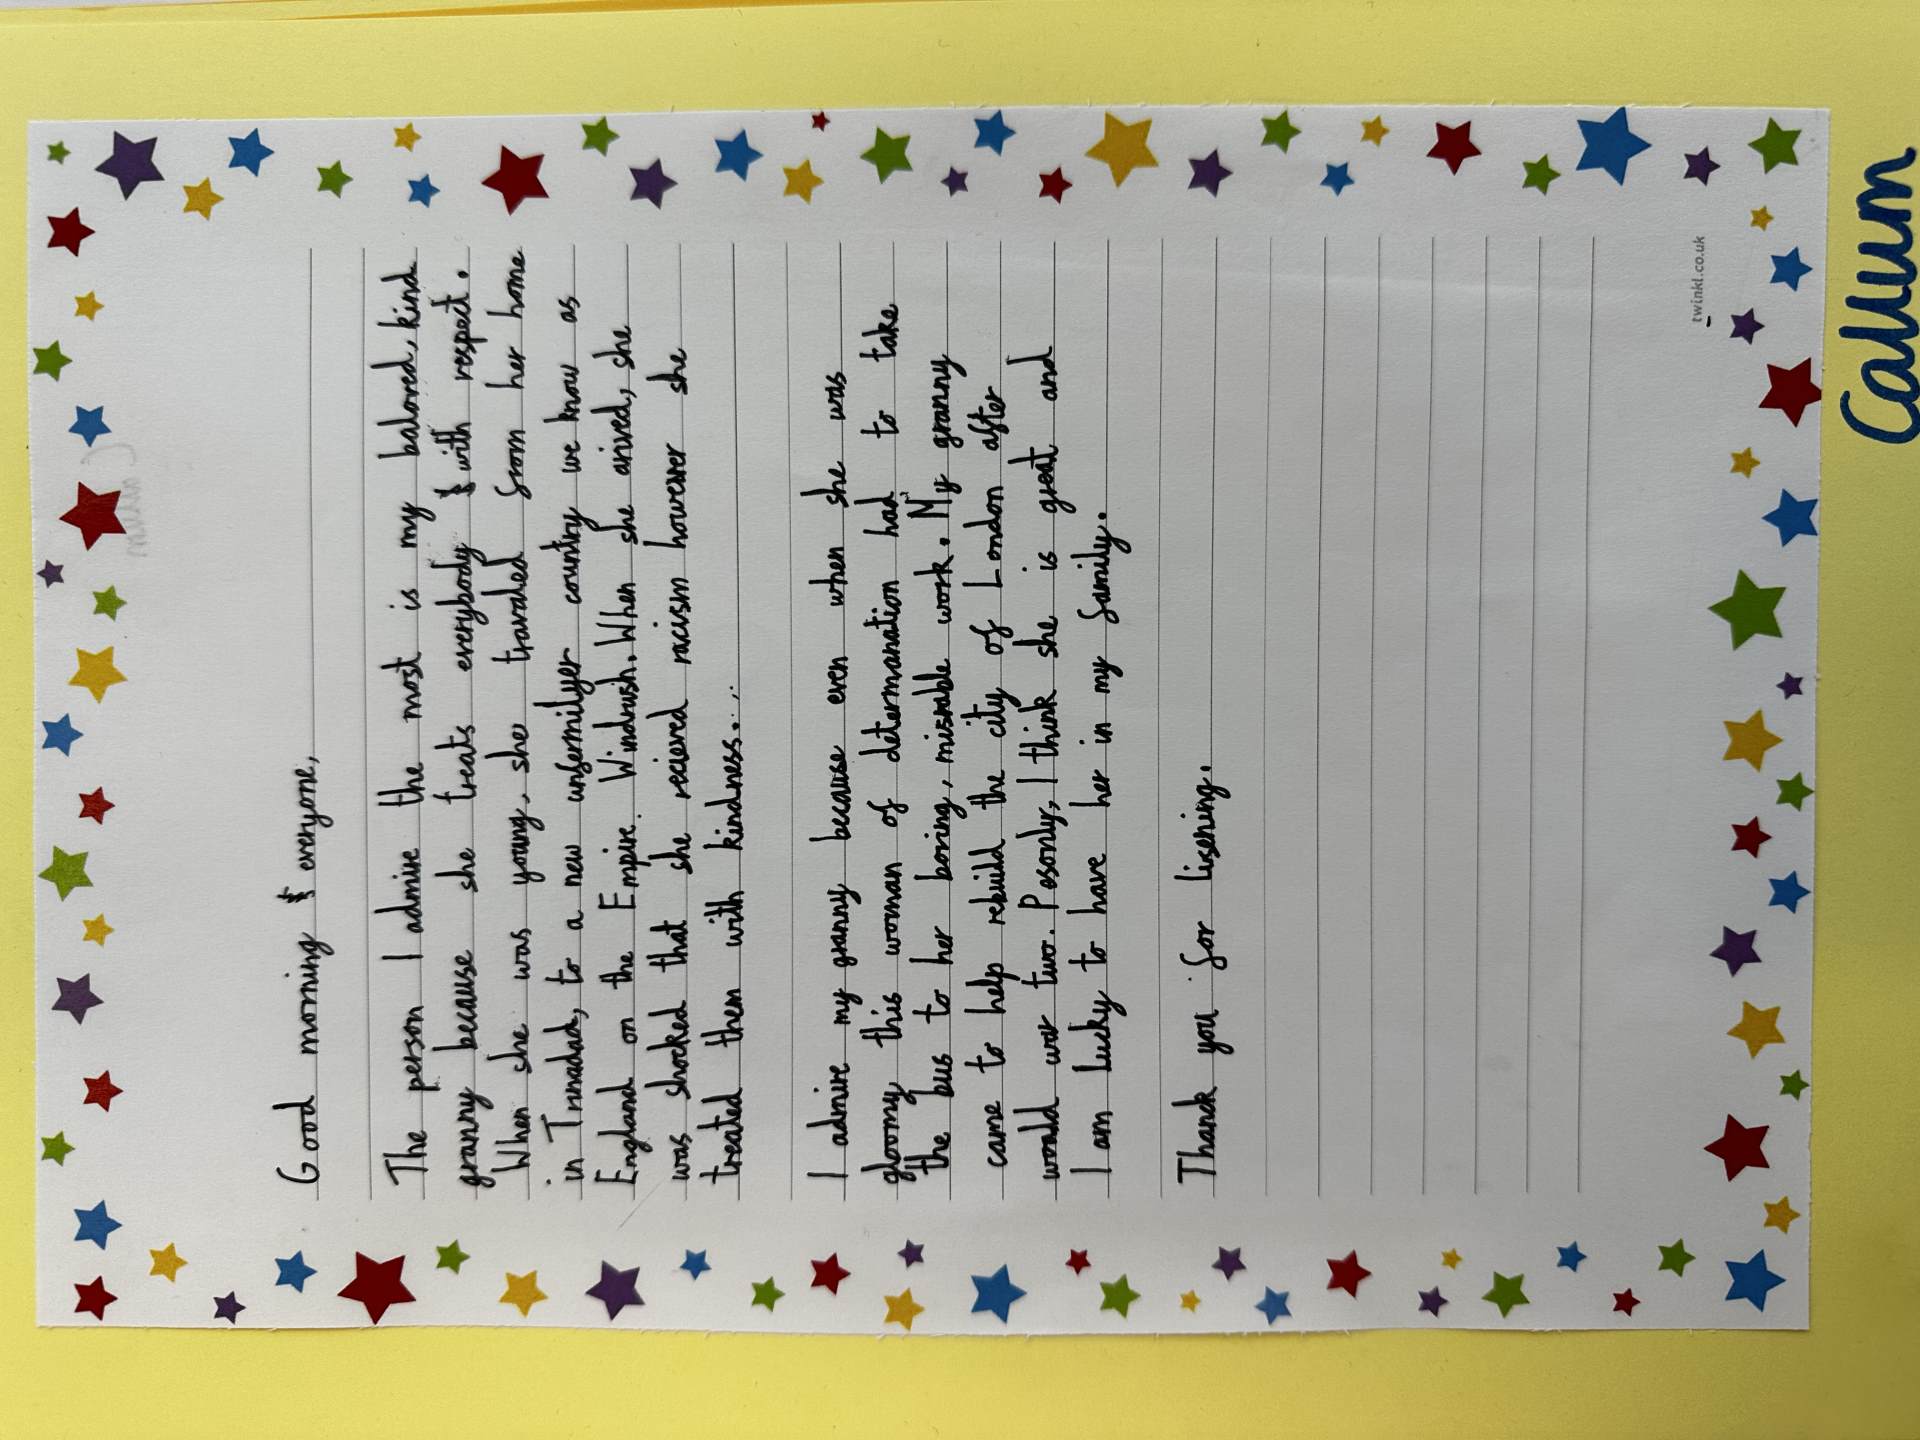 Good morning everyone,
The person I admire the most is my balored, kind
granny because she treats everybody with respect.
When she was young, she travaled from her home
in Trinadad, to a new unfermilyer country we know as
England on the Empire Windrush. When she arived, she
was shocked that she recieved racism however she
treated them with kindness...
I admire my granny because even when she was
gloomy this woman of determanation had to take
the bus to her boring, misrable work. My granny
came to help rebuild the city of London after
would war two. Pesonly, I think she is great and
I am lucky to have her in my family.
Thank you for lisening.
twinkl.co.uk
Callum